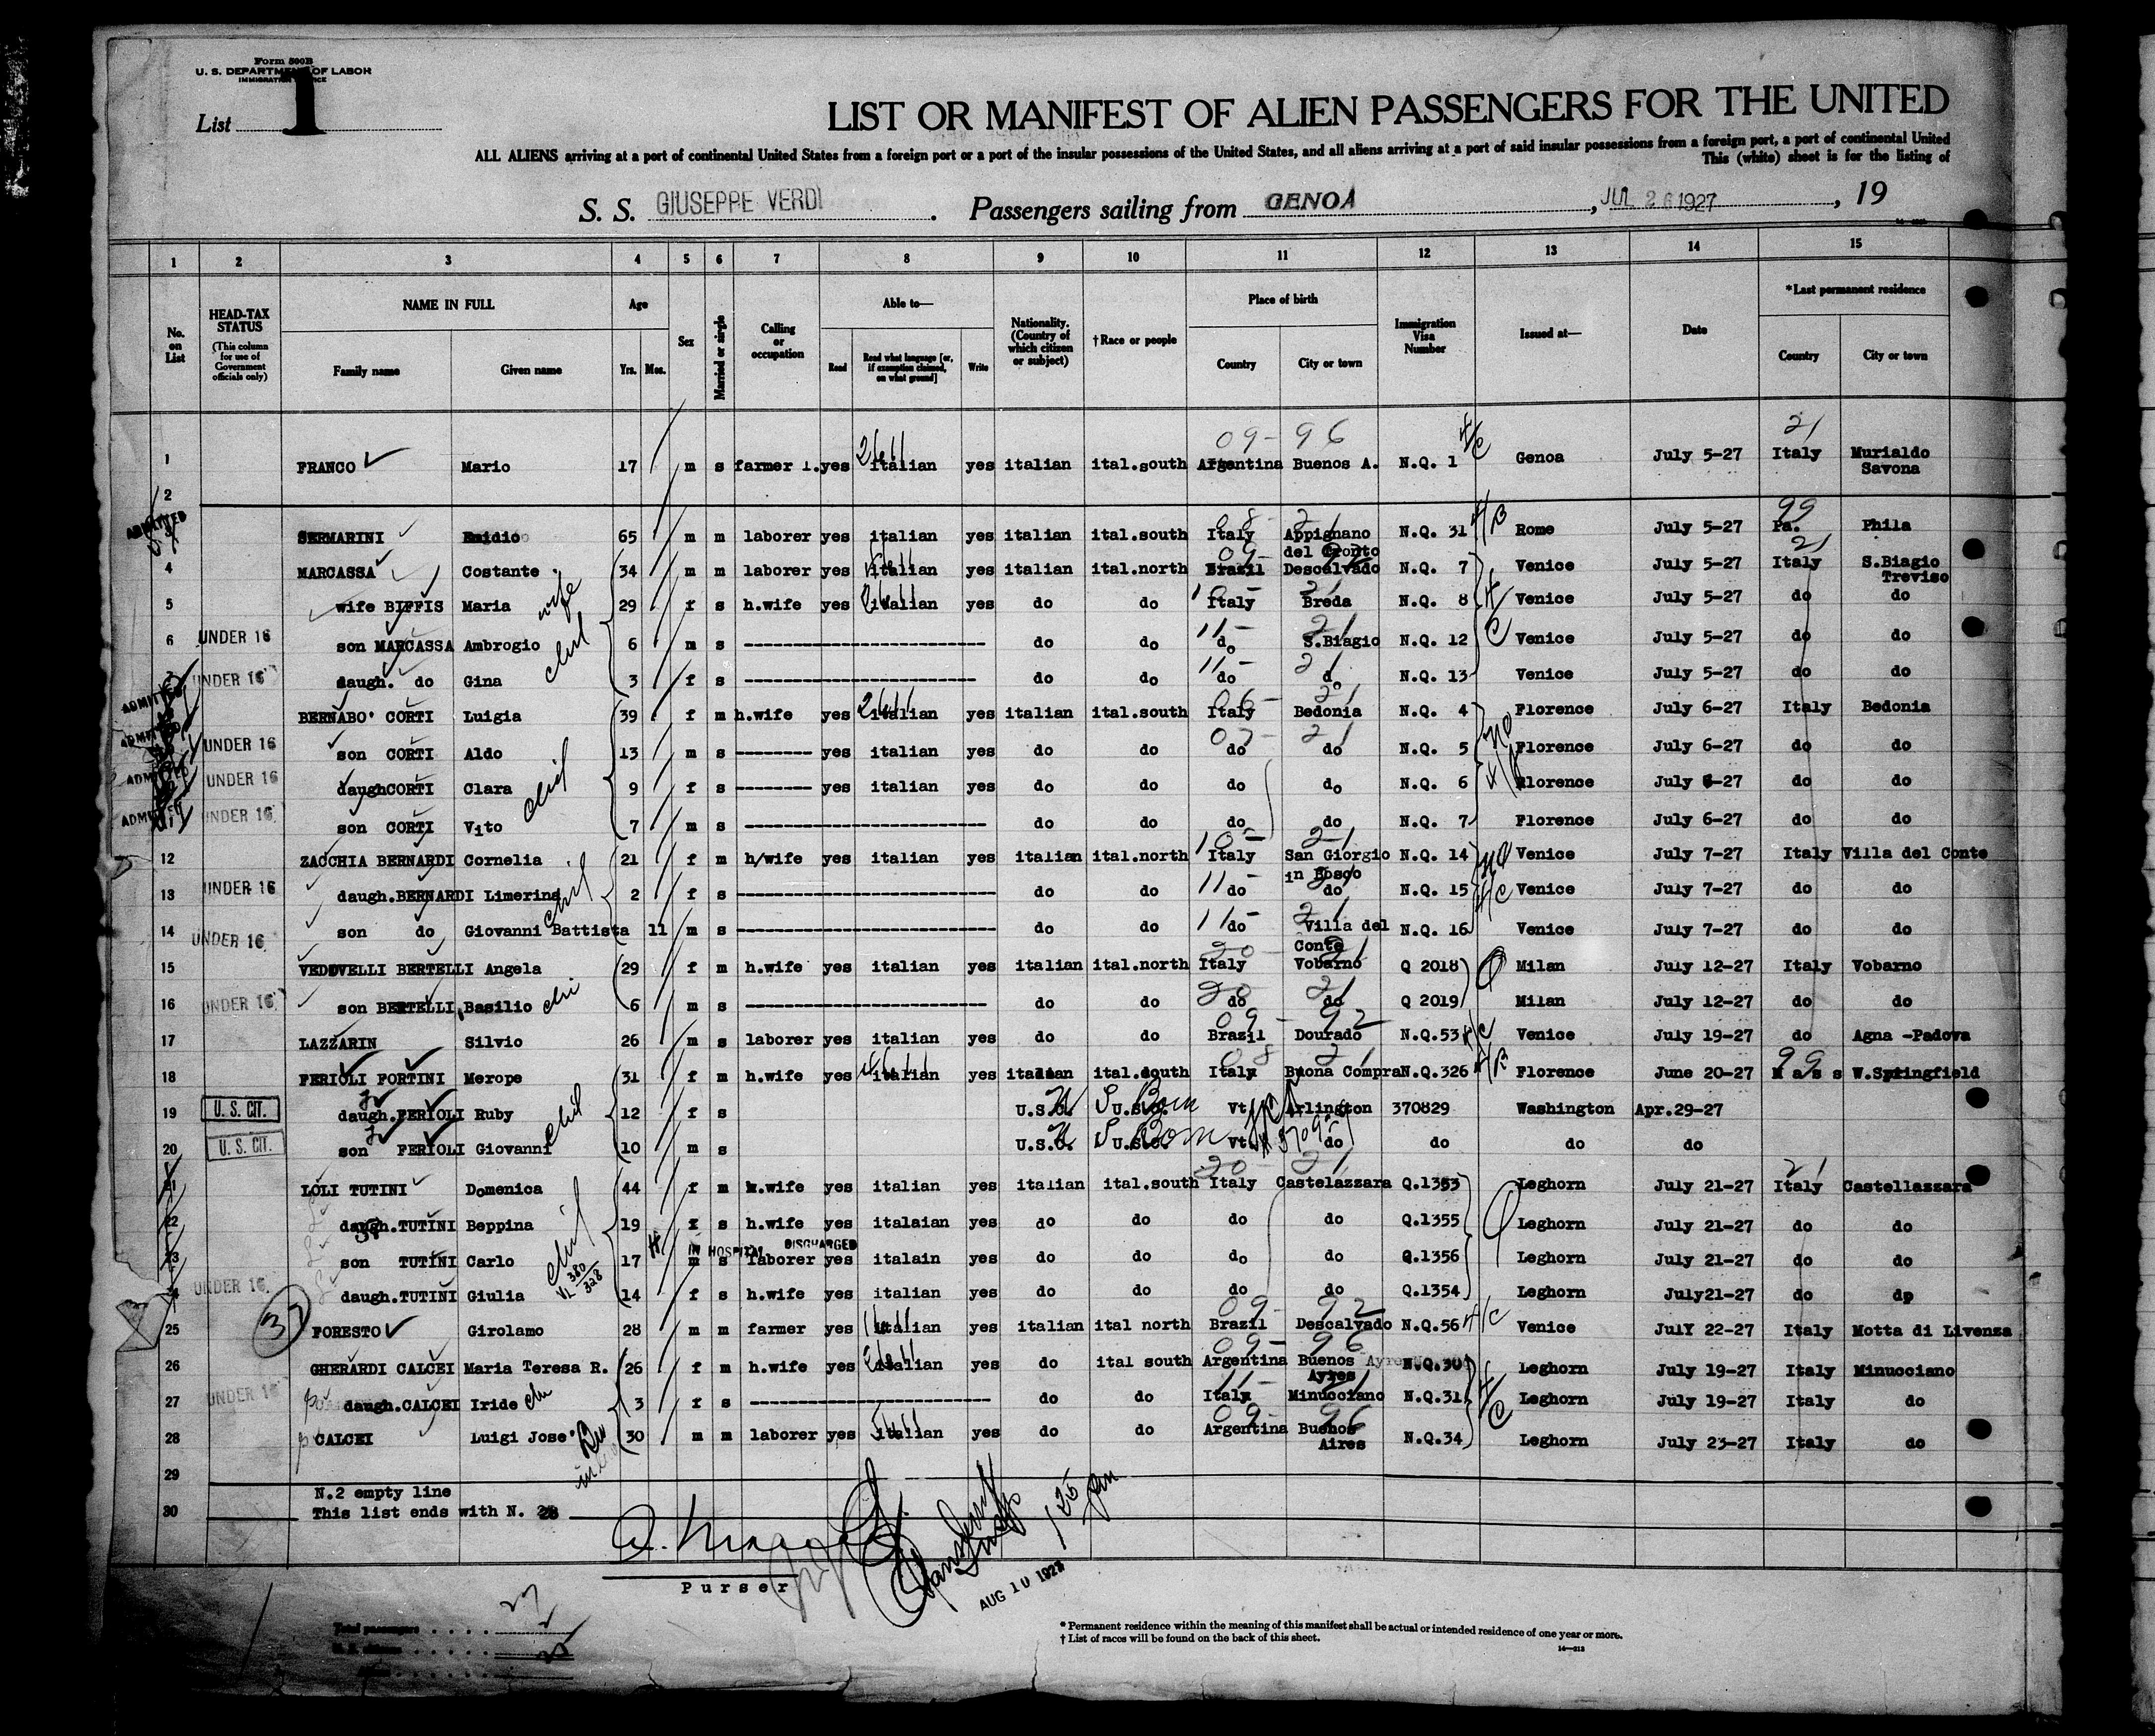 Form 500B
U. S. DEPARTMENT OF LABOR
IMMIGRATION SERVICE
List 1
LIST OR MANIFEST OF ALIEN PASSENGERS FOR THE UNITED
ALL ALIENS arriving at a port of continental United States from a foreign port or a port of the insular possessions of the United States, and all aliens arriving at a port of said insular possessions from a foreign port, a port of continental United
This (white) sheet is for the listing of
S. S. GIUSEPPE VERDI . Passengers sailing from GENOA , JUL 26 1927 , 19
1 2 3 4 5 6 7 8 9 10 11 12 13 14 15
No. on List
HEAD-TAX STATUS (This column for use of Government officials only)
NAME IN FULL
Family name Given name
Age
Yrs. Mos.
Sex
Married or single
Calling or occupation
Able to—
Read Read what language [or, if exemption claimed, on what ground] Write
Nationality. (Country of which citizen or subject)
† Race or people
Place of birth
Country City or town
Immigration Visa Number
Issued at—
Date
* Last permanent residence
Country City or town
09- 96 21
1 FRANCO Mario 17 m s farmer l. yes italian yes italian ital.south Argentina Buenos A. N.Q. 1 Genoa July 5-27 Italy Murialdo Savona
2
ADMITTED SERMARINI Emidio 65 m m laborer yes italian yes italian ital.south Italy Appignano del Tronto N.Q. 31 Rome July 5-27 Pa. Phila
4 MARCASSA Costante 34 m m laborer yes italian yes italian ital.north Brazil Descalvado N.Q. 7 Venice July 5-27 Italy S.Biagio Treviso
5 wife BIFFIS Maria wife 29 f s h.wife yes italian yes do do Italy Breda N.Q. 8 Venice July 5-27 do do
6 UNDER 16 son MARCASSA Ambrogio 6 m s do do do S.Biagio N.Q. 12 Venice July 5-27 do do
7 UNDER 16 daugh. do Gina 3 f s do do do do N.Q. 13 Venice July 5-27 do do
ADMITTED BERNABO' CORTI Luigia 39 f m h.wife yes italian yes italian ital.south Italy Bedonia N.Q. 4 Florence July 6-27 Italy Bedonia
ADMITTED UNDER 16 son CORTI Aldo 13 m s yes italian yes do do do do N.Q. 5 Florence July 6-27 do do
ADMITTED UNDER 16 daugh CORTI Clara 9 f s yes italian yes do do do do N.Q. 6 Florence July 6-27 do do
ADMITTED UNDER 16 son CORTI Vito 7 m s do do do do N.Q. 7 Florence July 6-27 do do
12 ZACCHIA BERNARDI Cornelia 21 f m h/wife yes italian yes italian ital.north Italy San Giorgio in Bosco N.Q. 14 Venice July 7-27 Italy Villa del Conte
13 UNDER 16 daugh. BERNARDI Limerina 2 f s do do do do N.Q. 15 Venice July 7-27 do do
14 UNDER 16 son do Giovanni Battista 11 m s do do do Villa del Conte N.Q. 16 Venice July 7-27 do do
15 VEDOVELLI BERTELLI Angela 29 f m h.wife yes italian yes italian ital.north Italy Vobarno Q 2018 Milan July 12-27 Italy Vobarno
16 UNDER 16 son BERTELLI Basilio 6 m s do do do do Q 2019 Milan July 12-27 do do
17 LAZZARIN Silvio 26 m s laborer yes italian yes do do Brazil Dourado N.Q.53 Venice July 19-27 do Agna -Padova
18 FERIOLI FORTINI Merope 31 f m h.wife yes italian yes italian ital.south Italy Buona Compra N.Q.326 Florence June 20-27 Mass W.Springfield
19 U. S. CIT. daugh. FERIOLI Ruby 12 f s U.S.C. U.S. Born Vt. Arlington 370829 Washington Apr.29-27
20 U. S. CIT. son FERIOLI Giovanni 10 m s U.S.C. U.S. Born Vt. do do do do
21 LOLI TUTINI Domenica 44 f m h.wife yes italian yes italian ital.south Italy Castelazzara Q.1353 Leghorn July 21-27 Italy Castellazzara
22 daugh. TUTINI Beppina 19 f s h.wife yes italaian yes do do do do Q.1355 Leghorn July 21-27 do do
IN HOSPITAL DISCHARGED
23 son TUTINI Carlo 17 m s laborer yes italain yes do do do do Q.1356 Leghorn July 21-27 do do
24 UNDER 16 daugh. TUTINI Giulia 14 f s h.wife yes italian yes do do do do Q.1354 Leghorn July21-27 do dp
25 FORESTO Girolamo 28 m m farmer yes italian yes italian ital north Brazil Descalvado N.Q.56 Venice JulY 22-27 Italy Motta di Livenza
26 GHERARDI CALCEI Maria Teresa R. 26 f m h.wife yes italian yes do ital south Argentina Buenos Ayres N.Q.30 Leghorn July 19-27 Italy Minucciano
27 UNDER 16 daugh. CALCEI Iride 3 f s do do Italy Minucciano N.Q.31 Leghorn July 19-27 Italy do
28 CALCEI Luigi Jose' 30 m m laborer yes italian yes do do Argentina Buenos Aires N.Q.34 Leghorn July 23-27 Italy do
29
N.2 empty line
30 This list ends with N. 28
Purser
AUG 10 1927
Total passengers
* Permanent residence within the meaning of this manifest shall be actual or intended residence of one year or more.
† List of races will be found on the back of this sheet.